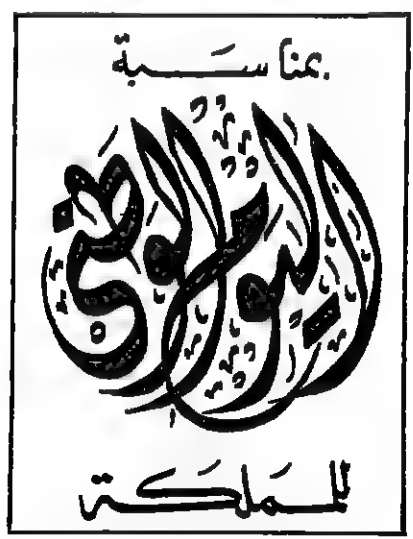 بمناسبة
اليوم الوطني
للمملكة